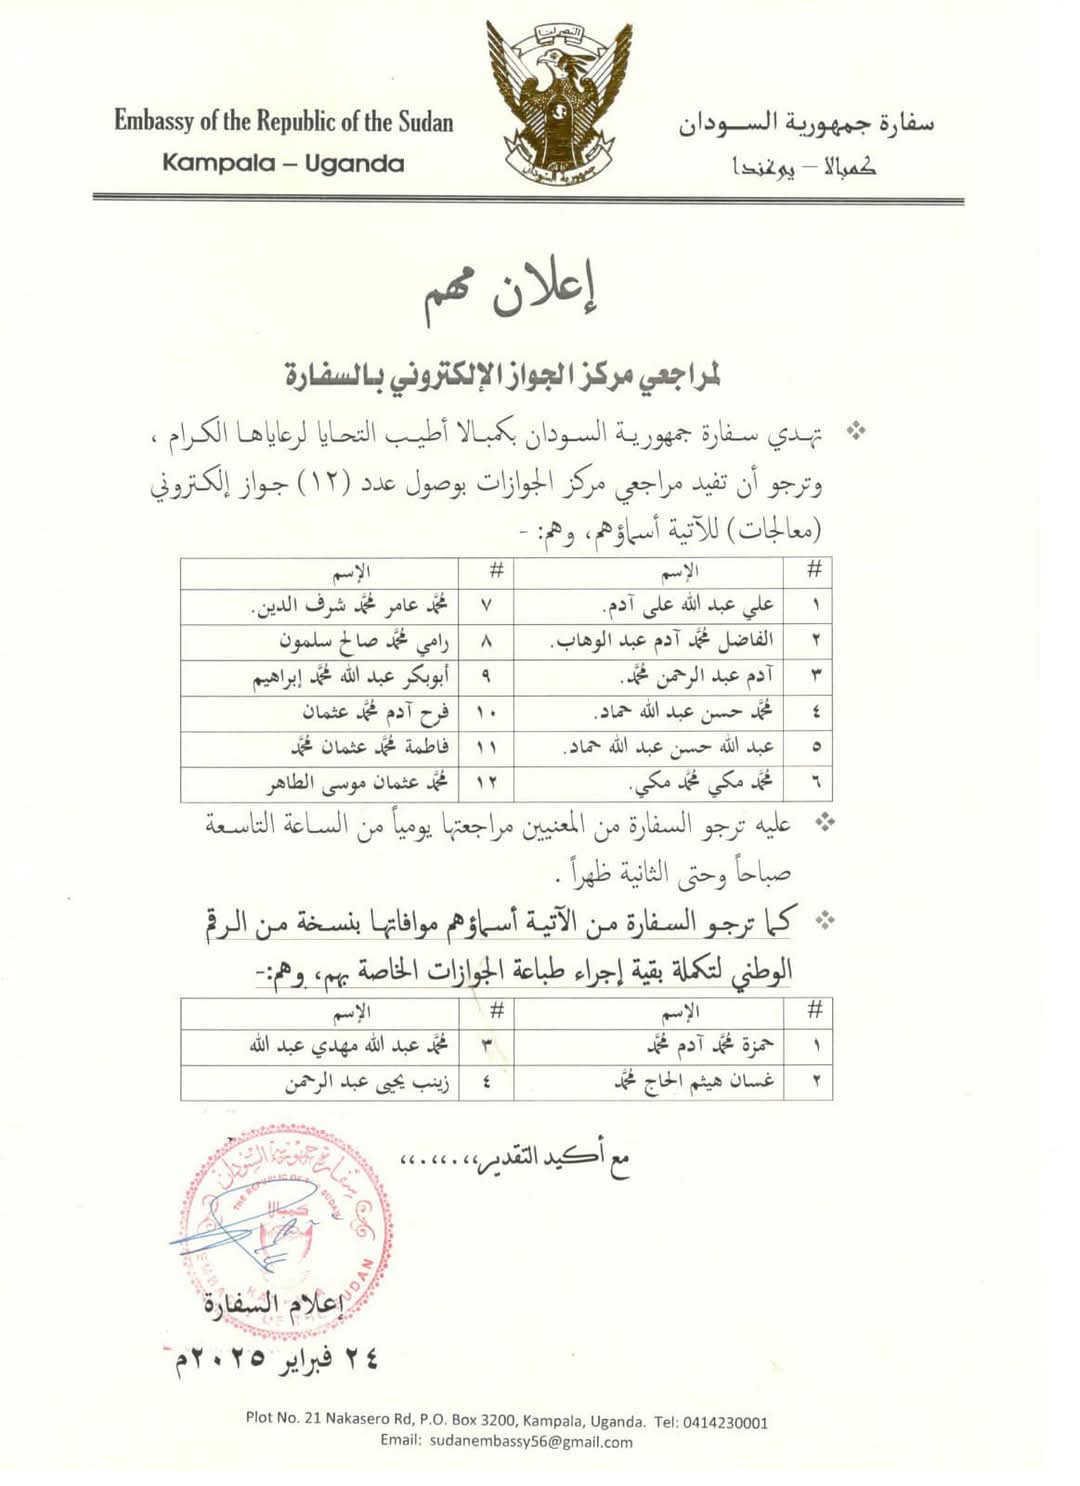 Embassy of the Republic of the Sudan
Kampala – Uganda
سفارة جمهورية الســودان
كمبالا – يوغندا
النصر لنا
جمهورية السودان
إعلان مهم
لمراجعي مركز الجواز الإلكتروني بالسفارة
❖ تهدي سفارة جمهورية السودان بكمبالا أطيب التحايا لرعاياها الكرام ،
وترجو أن تفيد مراجعي مركز الجوازات بوصول عدد (١٢) جواز إلكتروني
(معالجات) للآتية أسماؤهم، وهم: -
# الإسم # الإسم
١ علي عبد الله على آدم. ٧ محمد عامر محمد شرف الدين.
٢ الفاضل محمد آدم عبد الوهاب. ٨ رامي محمد صالح سلمون
٣ آدم عبد الرحمن محمد. ٩ أبوبكر عبد الله محمد إبراهيم
٤ محمد حسن عبد الله حماد. ١٠ فرح آدم محمد عثمان
٥ عبد الله حسن عبد الله حماد. ١١ فاطمة محمد عثمان محمد
٦ محمد مكي محمد مكي. ١٢ محمد عثمان موسى الطاهر
❖ عليه ترجو السفارة من المعنيين مراجعتها يومياً من الساعة التاسعة
صباحاً وحتى الثانية ظهراً .
❖ كما ترجو السفارة من الآتية أسماؤهم موافاتها بنسخة من الرقم
الوطني لتكملة بقية إجراء طباعة الجوازات الخاصة بهم، وهم:-
# الإسم # الإسم
١ حمزة محمد آدم محمد ٣ محمد عبد الله مهدي عبد الله
٢ غسان هيثم الحاج محمد ٤ زينب يحيى عبد الرحمن
مع أكيد التقدير،،.،،.،،،
سفارة جمهورية السودان
THE REPUBLIC OF THE SUDAN
كمبالا
EMBASSY OF THE SUDAN
KAMPALA
إعلام السفارة
٢٤ فبراير ٢٠٢٥م
Plot No. 21 Nakasero Rd, P.O. Box 3200, Kampala, Uganda. Tel: 0414230001
Email: sudanembassy56@gmail.com